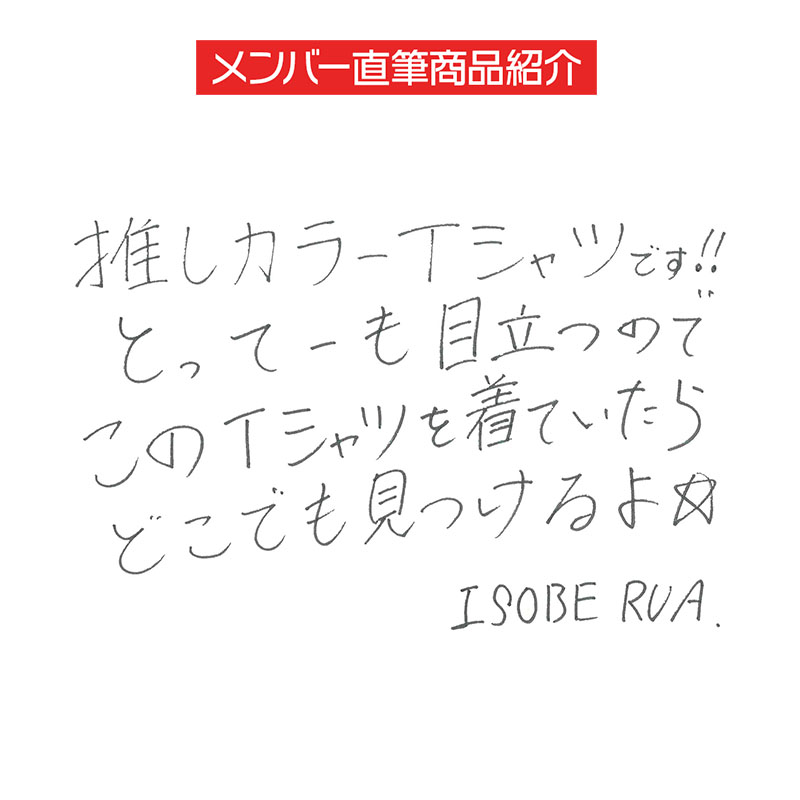 メンバー直筆商品紹介
推しカラーTシャツです!!
とってーも目立つので
このTシャツを着ていたら
どこでも見つけるよ☆
ISOBE RUA.